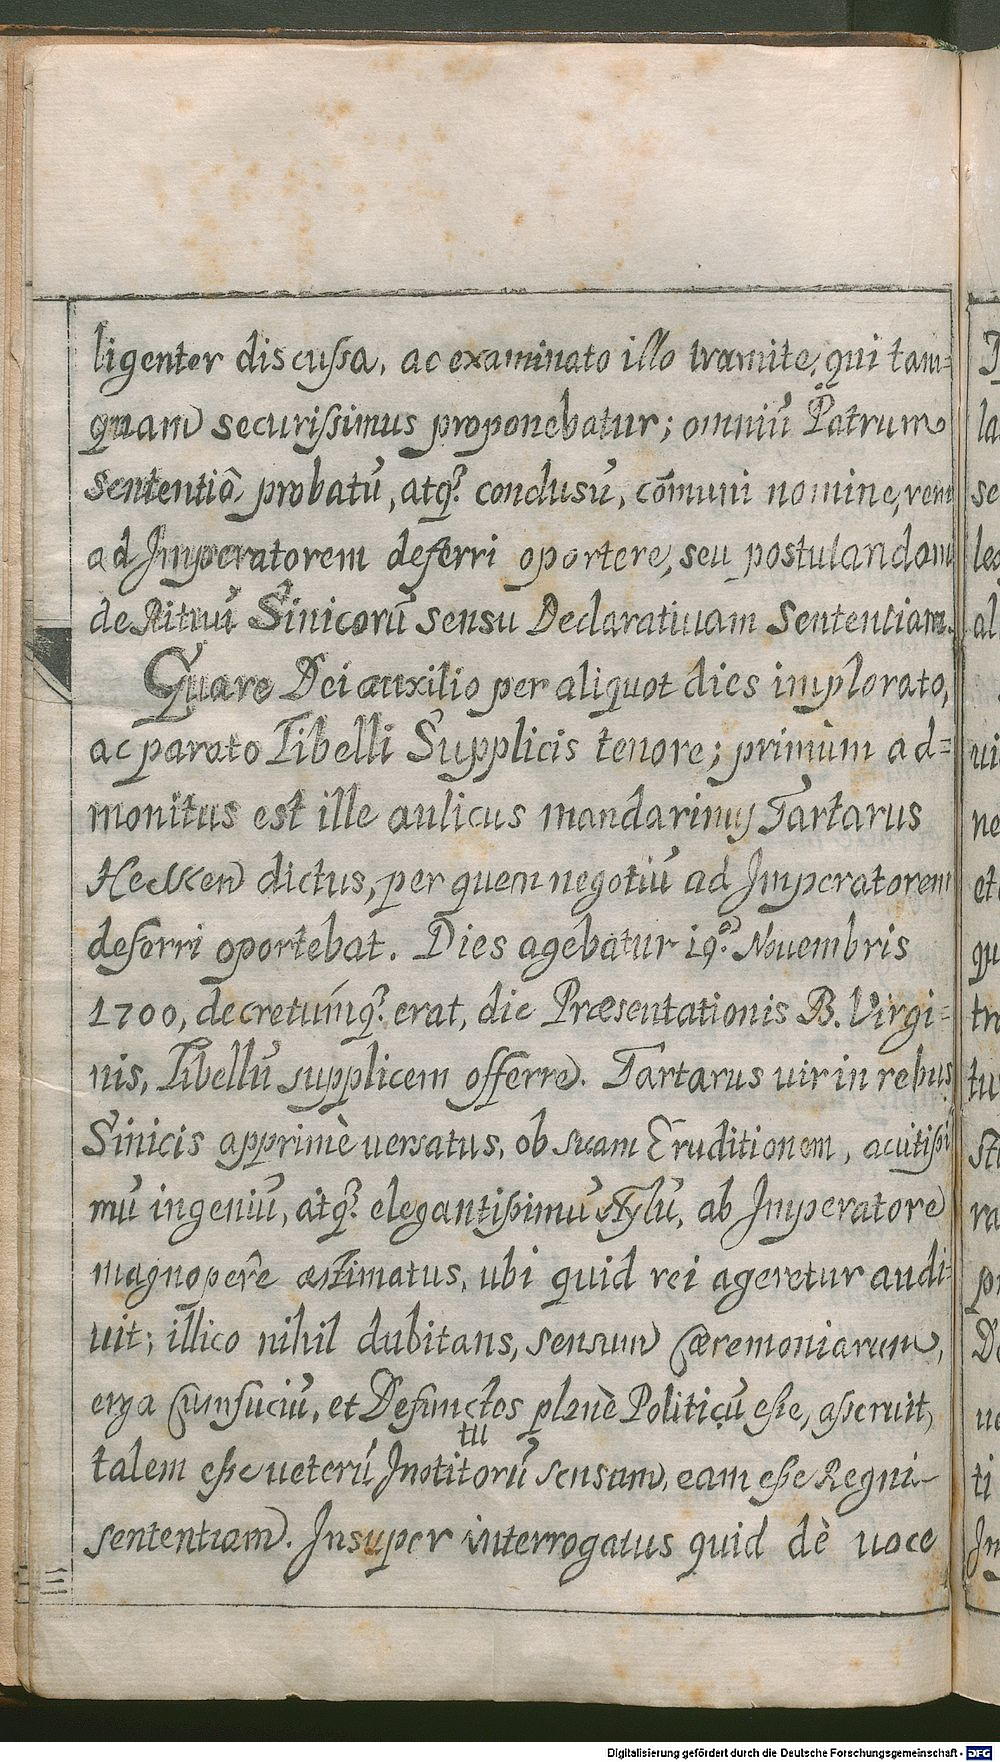 ligenter discußa, ac examinato illo tramite, qui tam=
quam securißimus proponebatur; omniũ Patrum
sententiâ probatũ, atq́; conclusũ, cõmuni nomine, rem
ad Imperatorem deferri oportere, seu postulandam
de Rituũ Sinicorũ sensu Declaratiuam Sententiam.
Quare Dei auxilio per aliquot dies implorato,
ac parato Libelli Supplicis tenore; primùm ad=
monitus est ille aulicus mandarinus Tartarus
Hecken dictus, per quem negotiũ ad Imperatorem
deferri oportebat. Dies agebatur 19.us Nouembris
1700, decretumq́; erat, die Præsentationis B. Virgi=
nis, Libellũ supplicem offerre. Tartarus uir in rebus
Sinicis apprimè uersatus, ob suam Eruditionem, acutißi
mũ ingeniũ, atq́; elegantißimũ stylũ, ab Imperatore
magnopere æstimatus, ubi quid rei ageretur audi=
uit; illico nihil dubitans, sensum Cæremoniarum,
erga Cumfuciũ, et Defunctos planè Politicũ eße, aßeruit,
talem eße ueterũ Institutorũ sensum, eam eße Regni
sententiam. Insuper interrogatus quid dè uoce
Digitalisierung gefördert durch die Deutsche Forschungsgemeinschaft - DFG